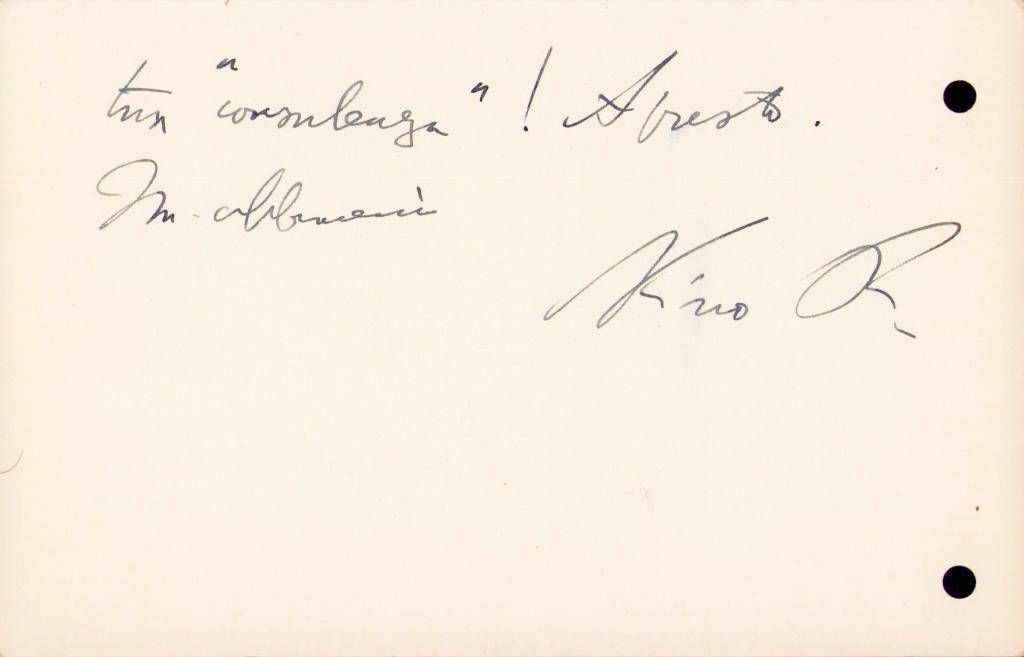 tua "consulenza"! A presto.
Tu. abbracci
Nino R.